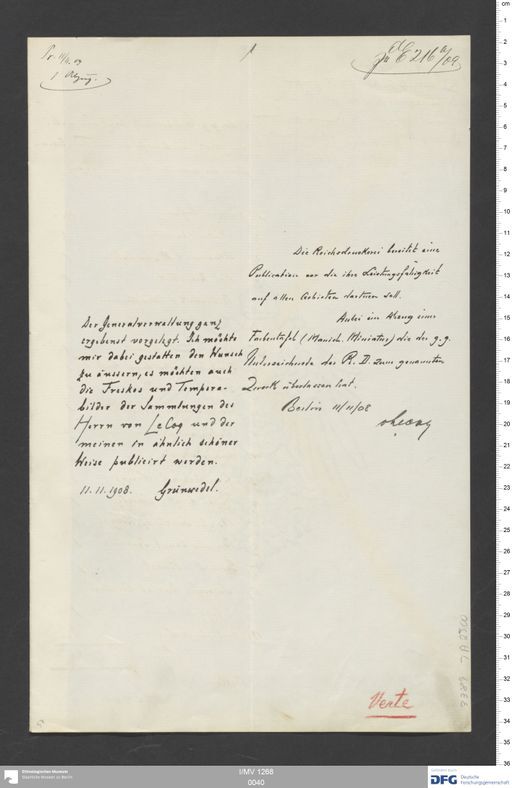 Pr. 11/11.09
1 Abzug.
zu E 216/09
Die Reichsdruckerei bereitet eine
Publication vor die ihre Leistungsfähigkeit
auf allen Gebieten dartuen soll.
Anbei ein Abzug einer
Farbentafel (Manich. Miniatur) die der g. g.
Unterzeichnete der R. D. zum genannten
Zweck überlassen hat.
Berlin 11/11/08
vLecoq
Der Generalverwaltung ganz
ergebenst vorgelegt. Ich möchte
mir dabei gestatten den Wunsch
zu äussern, es möchten auch
die Freskos und Tempera-
bilder der Sammlungen des
Herrn von LeCoq und der
meinen in ähnlich schöner
Weise publicirt werden.
11.11.1908. Grünwedel.
Verte
Ethnologisches Museum
Staatliche Museen zu Berlin
I/MV 1268
0040
DFG Deutsche
Forschungsgemeinschaft